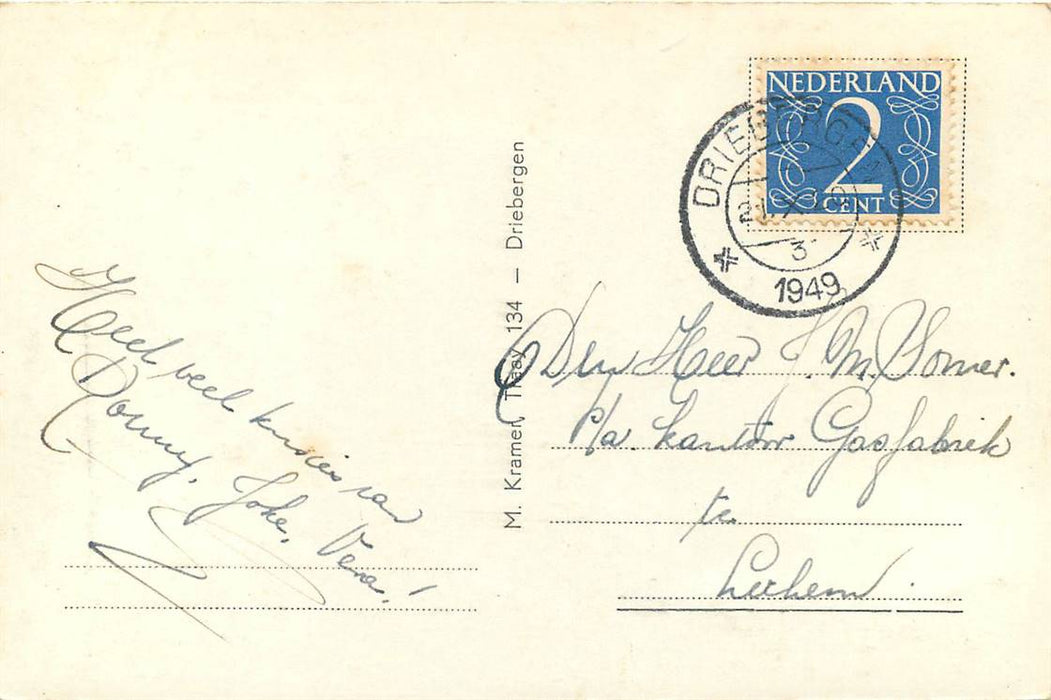 NEDERLAND
2
CENT
DRIEBERGEN
3
1949
M. Kramer, Traay 134 — Driebergen
Heel veel kusjes van
Ronny, Joke, Vera!
Den Heer J. M. Somer.
p/a. kantoor Gasfabriek
te